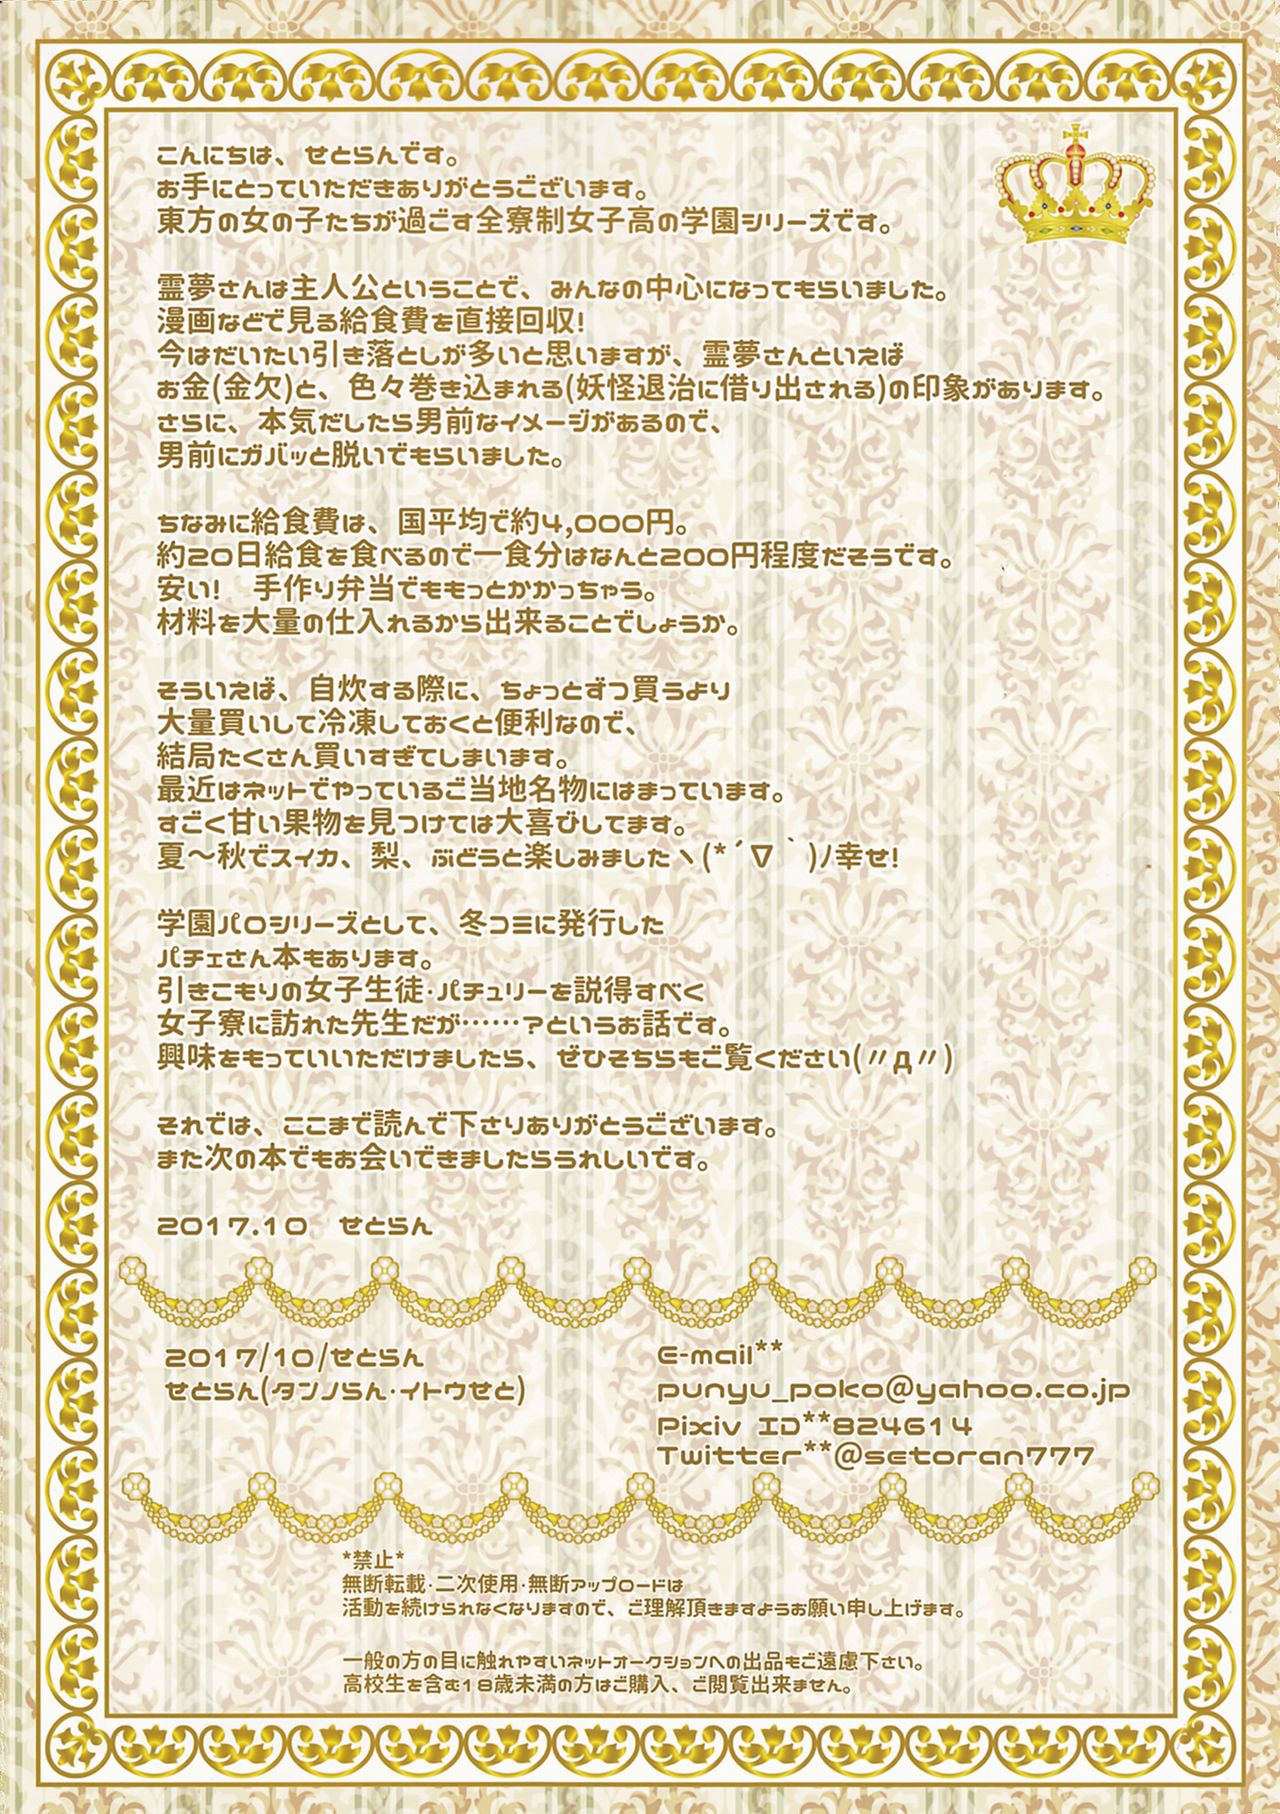 こんにちは、せとらんです。
お手にとっていただきありがとうございます。
東方の女の子たちが過ごす全寮制女子高の学園シリーズです。
霊夢さんは主人公ということで、みんなの中心になってもらいました。
漫画などで見る給食費を直接回収!
今はだいたい引き落としが多いと思いますが、霊夢さんといえば
お金(金欠)と、色々巻き込まれる(妖怪退治に借り出される)の印象があります。
さらに、本気だしたら男前なイメージがあるので、
男前にガバッと脱いでもらいました。
ちなみに給食費は、国平均で約4,000円。
約20日給食を食べるので一食分はなんと200円程度だそうです。
安い!　手作り弁当でももっとかかっちゃう。
材料を大量の仕入れるから出来ることでしょうか。
そういえば、自炊する際に、ちょっとずつ買うより
大量買いして冷凍しておくと便利なので、
結局たくさん買いすぎてしまいます。
最近はネットでやっているご当地名物にはまっています。
すごく甘い果物を見つけては大喜びしてます。
夏〜秋でスイカ、梨、ぶどうと楽しみましたヽ(*´∇｀)ﾉ幸せ!
学園パロシリーズとして、冬コミに発行した
パチェさん本もあります。
引きこもりの女子生徒·パチュリーを説得すべく
女子寮に訪れた先生だが……?というお話です。
興味をもっていいただけましたら、ぜひそちらもご覧ください(〃д〃)
それでは、ここまで読んで下さりありがとうございます。
また次の本でもお会いできましたらうれしいです。
2017.10　せとらん
2017/10/せとらん
せとらん(タンノらん·イトウせと)
E-mail**
punyu_poko@yahoo.co.jp
Pixiv ID**824614
Twitter**@setoran777
*禁止*
無断転載·二次使用·無断アップロードは
活動を続けられなくなりますので、ご理解頂きますようお願い申し上げます。
一般の方の目に触れやすいネットオークションへの出品もご遠慮下さい。
高校生を含む18歳未満の方はご購入、ご閲覧出来ません。